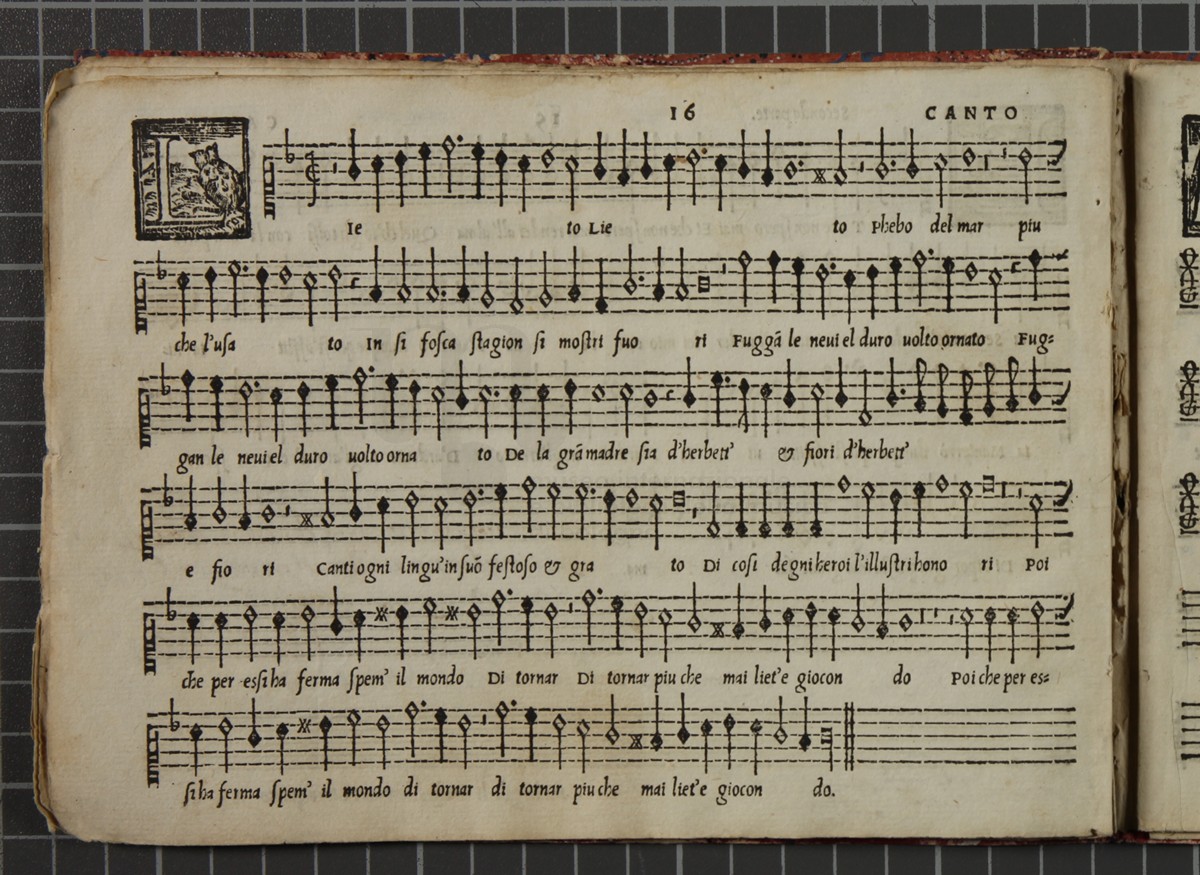 16 CANTO
L Ie to Lie to Phebo del mar piu
che l'usa to In si fosca stagion si mostri fuo ri Fuggā le neui el duro uolto ornato Fug=
gan le neui el duro uolto orna to De la grā madre sia d'herbett' & fiori d'herbett'
e fio ri Canti ogni lingu' in suō festoso & gra to Di cosi degni heroi l'illustri hono ri Poi
che per essi ha ferma spem' il mondo Di tornar Di tornar piu che mai liet'e giocon do Poi che per es=
si ha ferma spem' il mondo di tornar di tornar piu che mai liet'e giocon do.